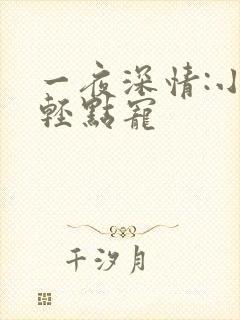 一夜深情:小
輕點寵
千汐月